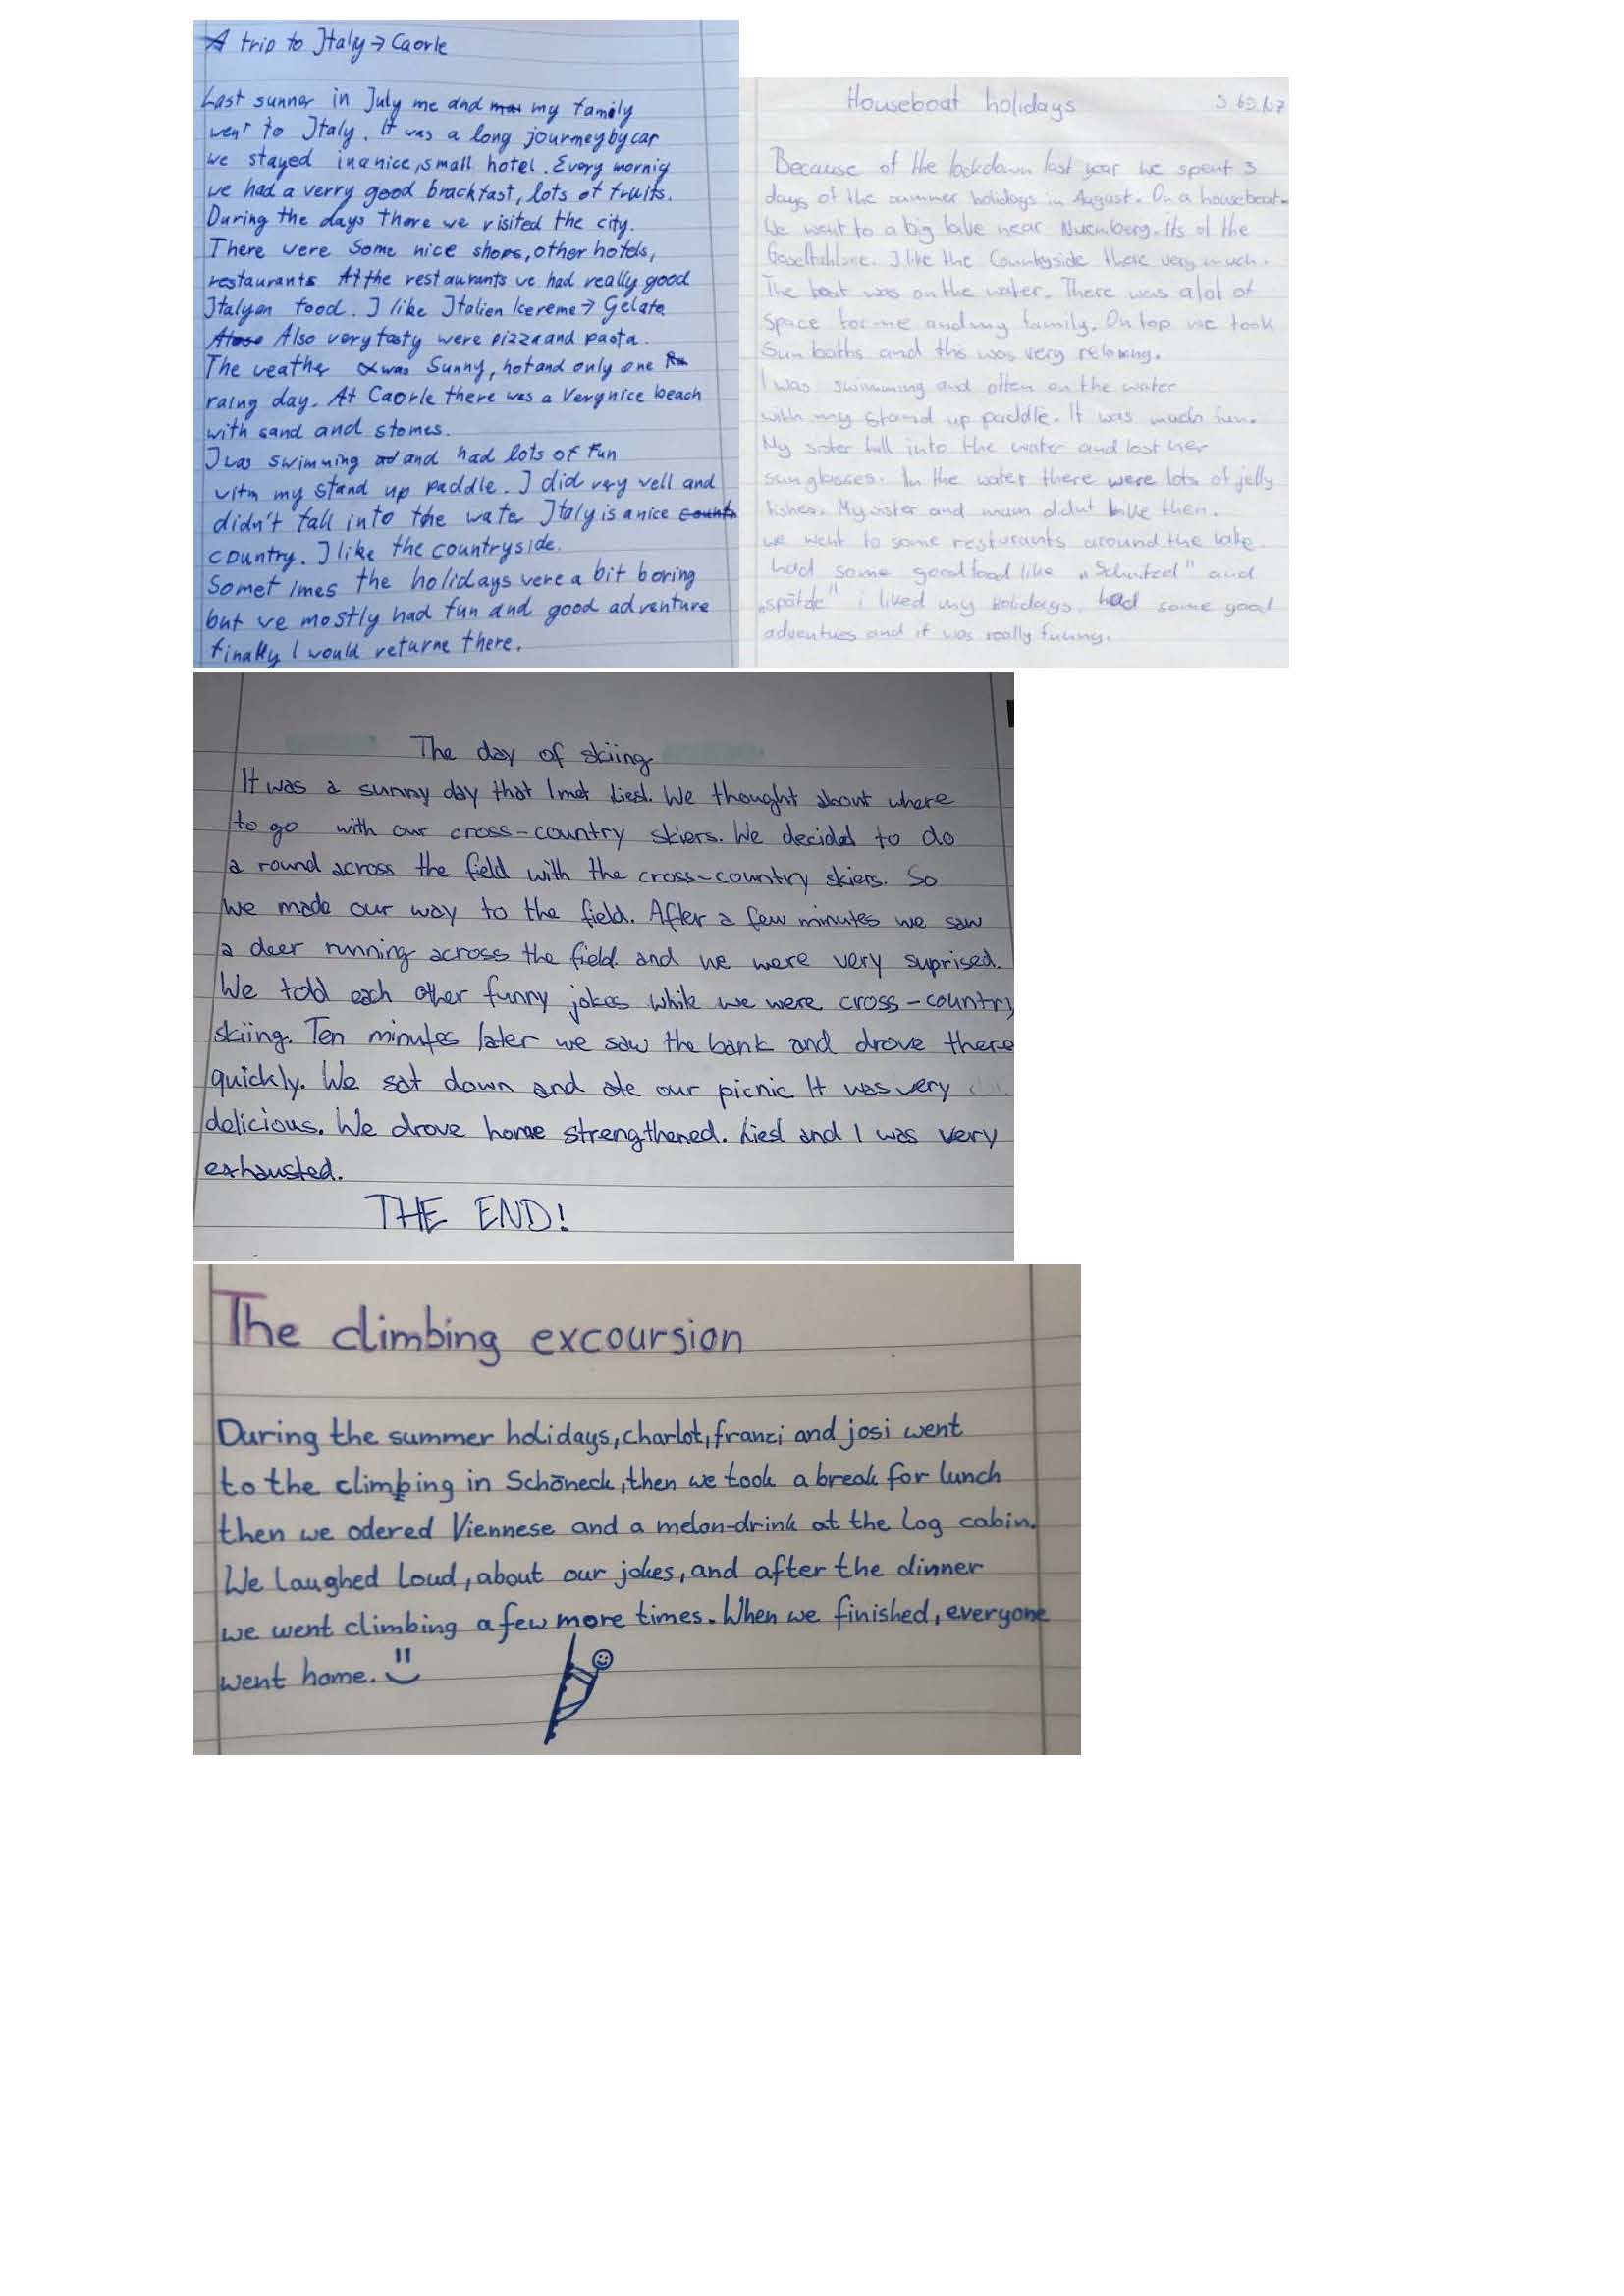 A trip to Italy → Caorle
Last sunner in July me and my family
went to Italy. It was a long journey by car
we stayed in a nice, small hotel. Every mornig
we had a verry good brackfast, lots of fruits.
During the days there we visited the city.
There were some nice shops, other hotels,
restaurants At the restaurants we had really good
Italyan food. I like Italien Icereme → Gelato
Also very tasty were pizza and pasta.
The weather was Sunny, hot and only one
raing day. At Caorle there was a Very nice beach
with sand and stomes.
I was swimming and had lots of fun
vitm my stand up paddle. I did very vell and
didn't fall into the water Italy is a nice
country. I like the countryside.
Sometimes the holidays vere a bit boring
but we mostly had fun and good adventure
finally I would returne there.
Houseboat holidays S 69 Nr7
Because of the lockdown last year we spent 3
days of the summer holidays in August. On a houseboat.
We went to a big lake near Nuernberg. Its the
I like the Countryside there very much.
The boat was on the water. There was a lot of
space for me and my family. On top we took
Sun baths and this was very relaxing.
I was swimming and often on the water
with my stand up paddle. It was much fun.
My sister fall into the water and lost her
sunglasses. In the water there were lots of jelly
fishes. My sister and mum didnt like them.
we went to some resturants around the lake.
had some good food like „Schnitzel" and
„spätzle" i liked my Holidays. had some good
adventues and it was really funny.
The day of skiing
It was a sunny day that I met Liesl. We thought about where
to go with our cross-country skiers. We decided to do
a round across the field with the cross-country skiers. So
we made our way to the field. After a few minutes we saw
a deer running across the field. and we were very suprised.
We told each other funny jokes while we were cross-country
skiing. Ten minutes later we saw the bank and drove there
quickly. We sat down and ate our picnic. It was very
delicious. We drove home strengthened. Liesl and I was very
exhausted.
THE END!
The climbing excoursion
During the summer holidays, charlot, franzi and josi went
to the climbing in Schöneck, then we took a break for lunch
then we odered Viennese and a melon-drink at the log cabin.
We laughed loud, about our jokes, and after the dinner
we went climbing a few more times. When we finished, everyone
went home.